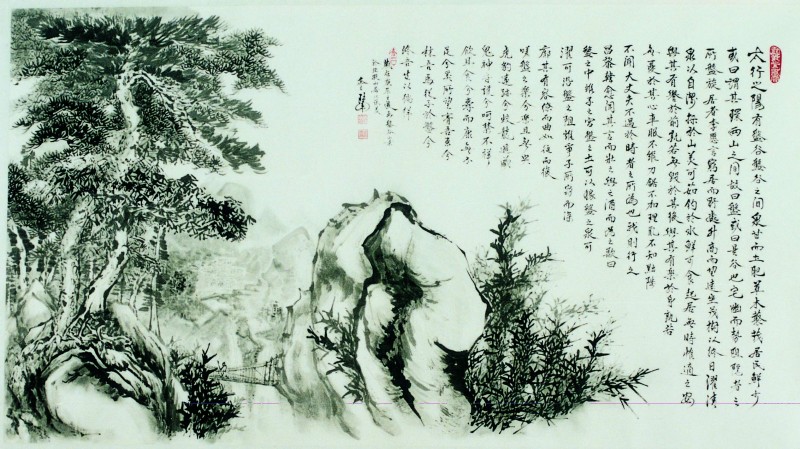 太行之陽有盤谷盤谷之間泉甘而土肥草木藂茂居民鮮少
或曰謂其環兩山之間故曰盤或曰是谷也宅幽而勢阻隱者之
所盤旋居者李愿言窮居而野處升高而望遠坐茂樹以終日濯清
泉以自潔採於山美可茹釣於水鮮可食起居無時惟適之安
與其有譽於前孰若無毀於其後與其有樂於身孰若
無憂於其心車服不維刀鋸不加理亂不知黜陟
不聞大丈夫不遇於時者之所為也我則行之
昌黎韓愈聞其言而壯之與之酒而為之歌曰
盤之中維子之宮盤之土可以稼盤之泉可
濯可沿盤之阻誰爭子所窈而深
廓其有容繚而曲如往而復
嗟盤之樂兮樂且無央
虎豹遠跡兮蛟龍遁藏
鬼神守護兮呵禁不祥
飲且食兮壽而康無不
足兮奚所望膏吾車兮
秣吾馬從子於盤兮
終吾生以徜徉